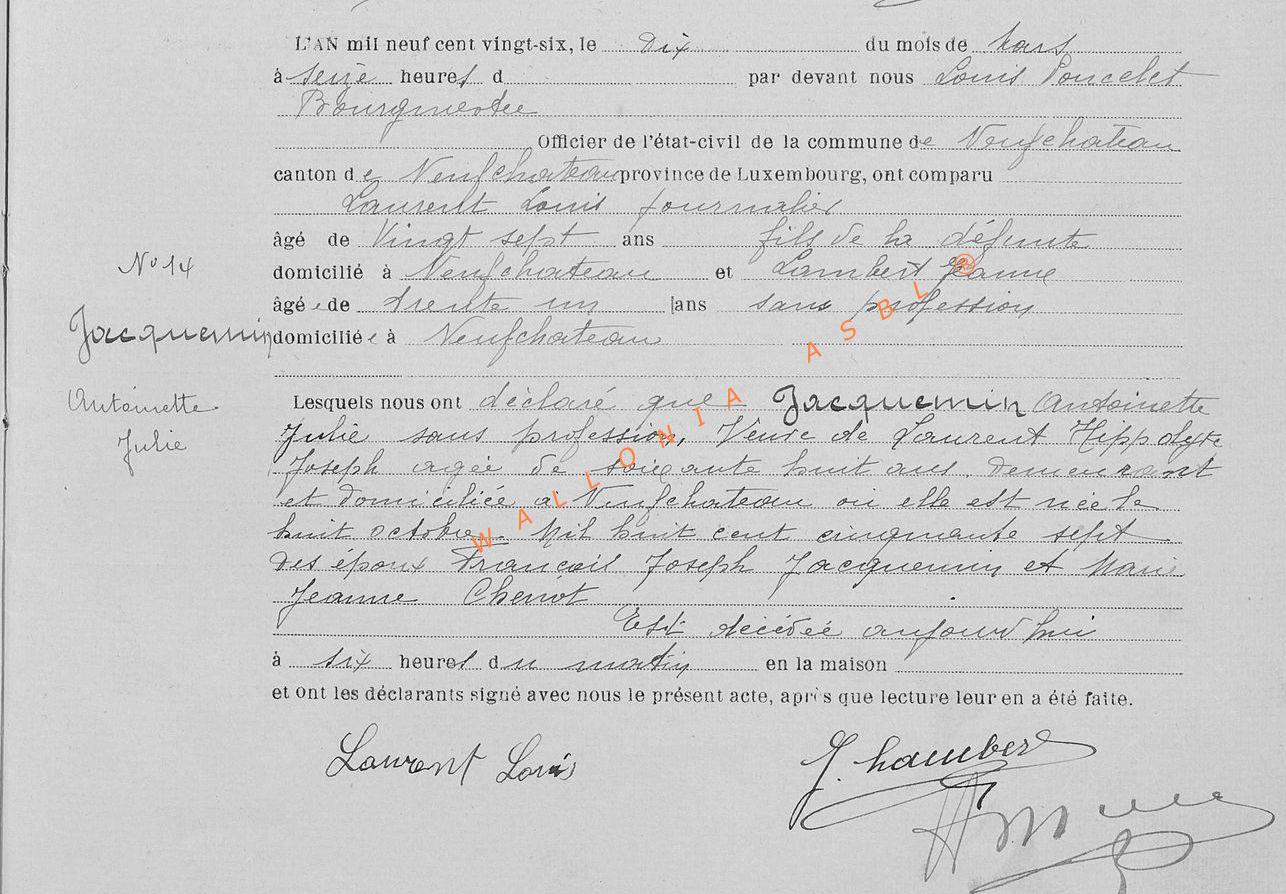 L'AN mil neuf cent vingt-six, le dix du mois de Mars
à seize heures d par devant nous Louis Poncelet
Bourgmestre
Officier de l'état-civil de la commune de Neufchateau
canton de Neufchateau province de Luxembourg, ont comparu
Laurent Louis journalier
âgé de Vingt sept ans fils de la défunte
domicilié à Neufchateau et Lambert Jeanne
N° 14
âgée de trente un ans sans profession
Jacquemin
domiciliée à Neufchateau
Antoinette
Julie
Lesquels nous ont déclaré que Jacquemin Antoinette
Julie sans profession, Veuve de Laurent Hippolyte
Joseph agée de soixante huit ans demeurant
et domiciliée à Neufchateau où elle est née le
huit octobre Mil huit cent cinquante sept
des époux François Joseph Jacquemin et Marie
Jeanne Chenot
Est décédée aujourd'hui
à six heures du matin en la maison
et ont les déclarants signé avec nous le présent acte, après que lecture leur en a été faite.
Laurent Louis
J. Lambert
WALLONIA ASBL ®